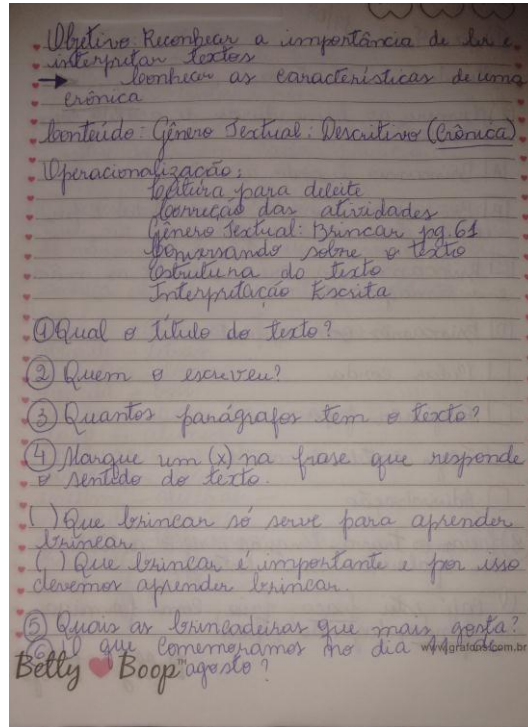 Objetivo: Reconhecer a importância de ler e
interpretar textos
→ Conhecer as características de uma
crônica
Conteúdo: Gênero Textual: Descritivo (Crônica)
Operacionalização:
Leitura para deleite
Correção das atividades
Gênero Textual: Brincar pg.61
Conversando sobre o texto
Estrutura do texto
Interpretação Escrita
① Qual o título do texto?
② Quem o escreveu?
③ Quantos parágrafos tem o texto?
④ Marque um (x) na frase que responde
o sentido do texto.
( ) Que brincar só serve para aprender
brincar
( ) Que brincar é importante e por isso
devemos aprender brincar.
⑤ Quais as brincadeiras que mais gosta?
⑥ O que comemoramos no dia 11 de
www.grafons.com.br
Betty Boop™ agosto?